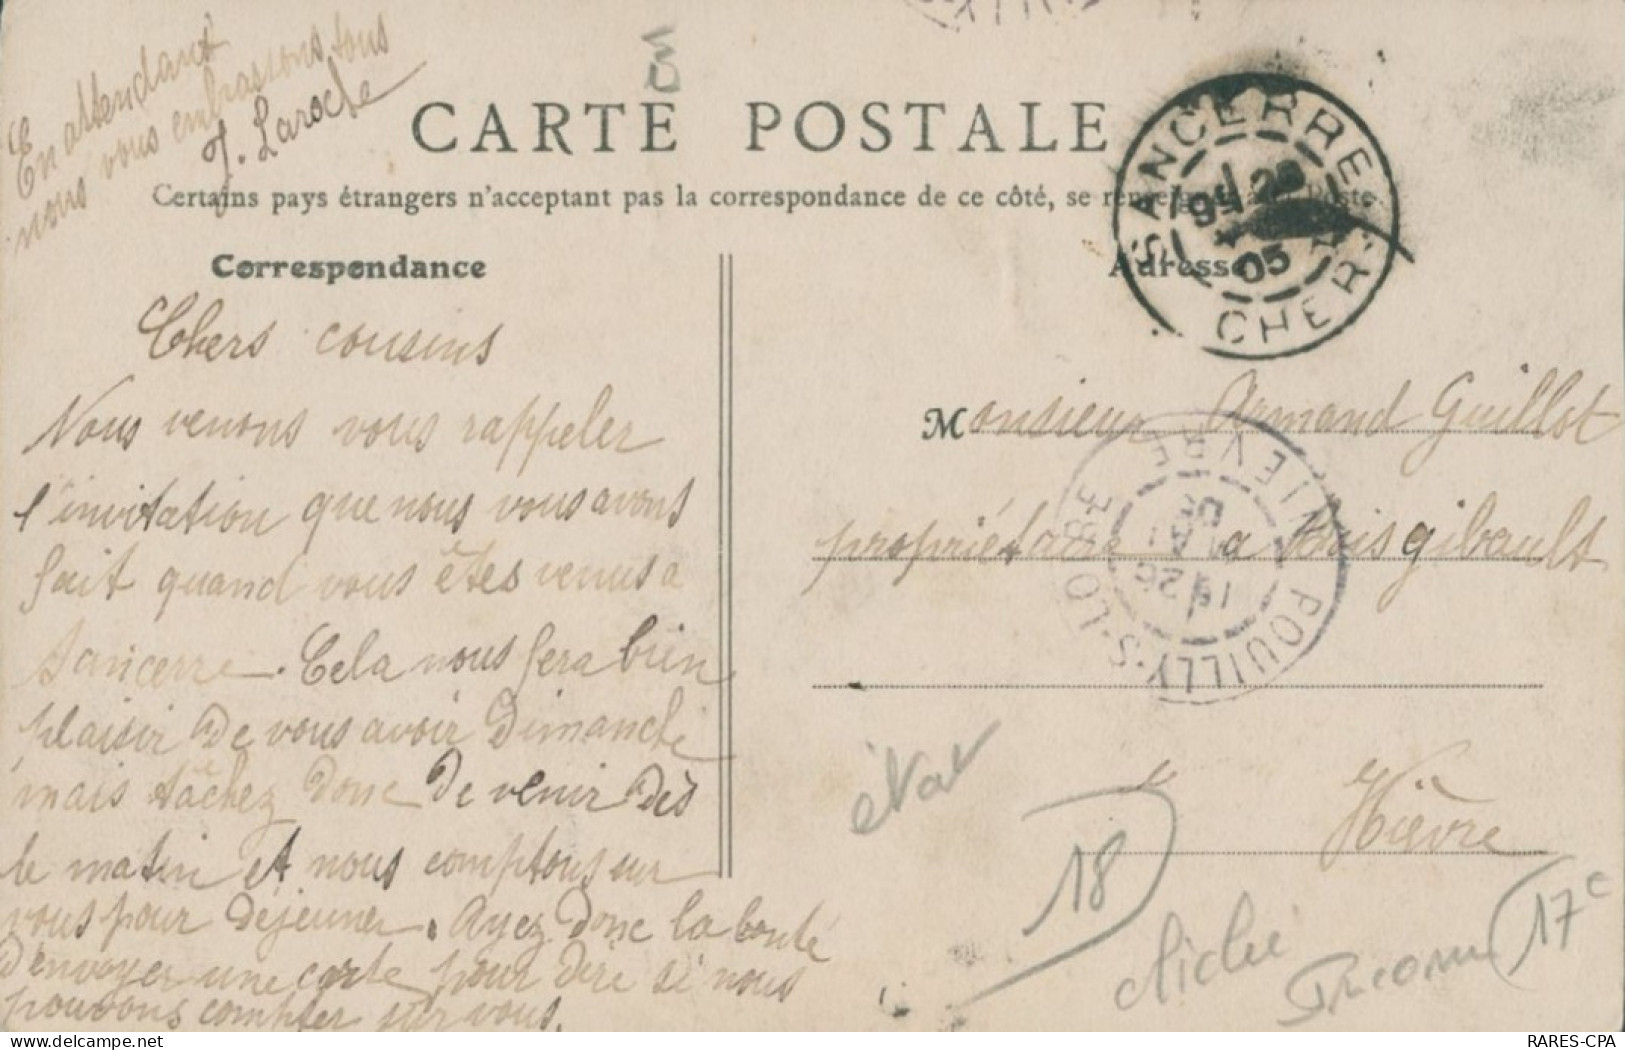 En attendant
nous vous embrassons tous
J. Laroche
CARTE POSTALE
Certains pays étrangers n'acceptant pas la correspondance de ce côté, se renseigner à la Poste
Correspondance
Chers cousins
Nous venons vous rappeler
l'invitation que nous vous avons
fait quand vous êtes venus a
Sancerre. Cela nous fera bien
plaisir de vous avoir Dimanche
mais tâchez donc de venir dès
le matin et nous comptons sur
vous pour déjeuner. Ayez donc la bonté
d'envoyer une carte pour dire si nous
pouvons compter sur vous.
Adresse
SANCERRE
05
CHER
Monsieur Armand Guillot
propriétaire a Boisgibault
Nièvre
POUILLY-S-LOIRE
NIEVRE
état
18
cliché
17e
RARES-CPA